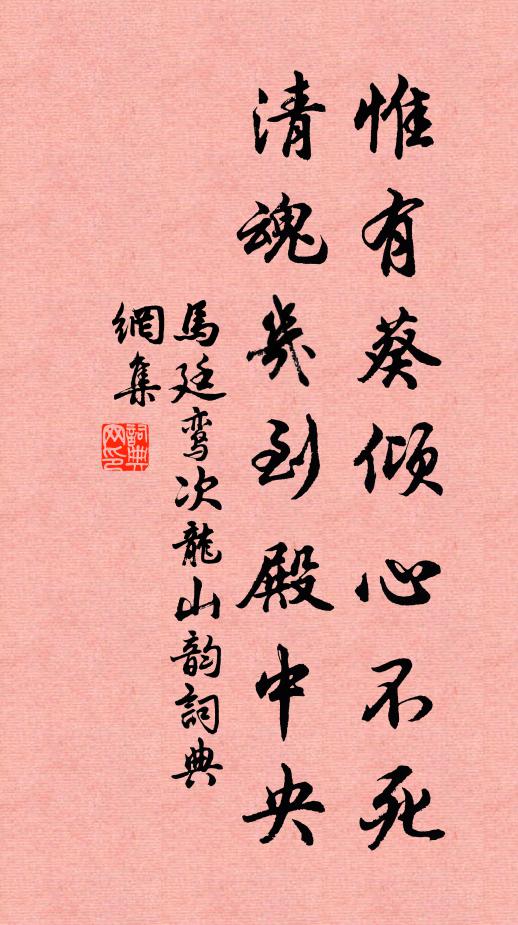 惟有葵倾心不死
清魂幾到殿中央
馬廷鸾次龍山韵詞典
網集
詞典网印